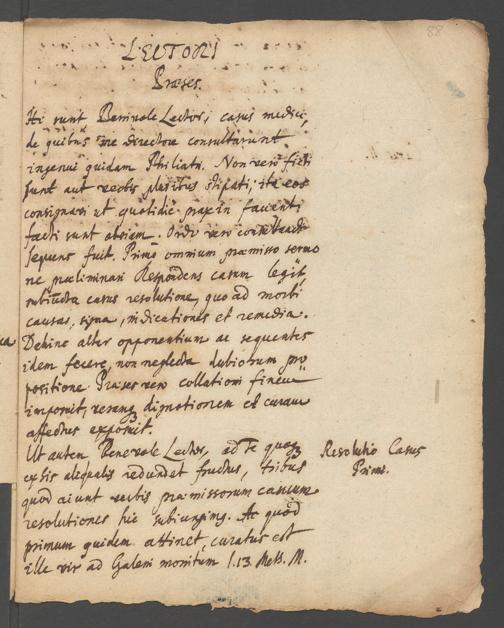 88
LECTORI
Præses.
Hi sunt Benivole Lector, casus medici,
de quibus me directore consultarunt
ingenui quidam Philiatri. Non vero ficti
sunt aut verbis pluribus stipati, ita eos
consignavi ut quotidie praxin facienti
facti sunt obviam. Ordo vero consultandi
sequens fuit. Primo omnium præmisso sermo
ne præliminari Respondens casum legit
subiuncta casus resolutione, quo ad morbi
causas, signa, indicationes et remedia.
Dehinc alter opponentium ac sequentes
idem fecere, non neglecta dubiorum pro
positione. Præses vero collationi finem
imposuit, veramq dignotionem et curam
affectus exposuit.
Ut autem Benevole Lector, ad Te quoq
exhis aliqualis redundet fructus, tribus
quod aiunt verbis præmissorum casuum
resolutiones hic subiungimq. Ac quod
primum quidem attinet, curatus est
ille vir ad Galeni monitum l.13. Meth. M.
Resolutio Casus
Primi.